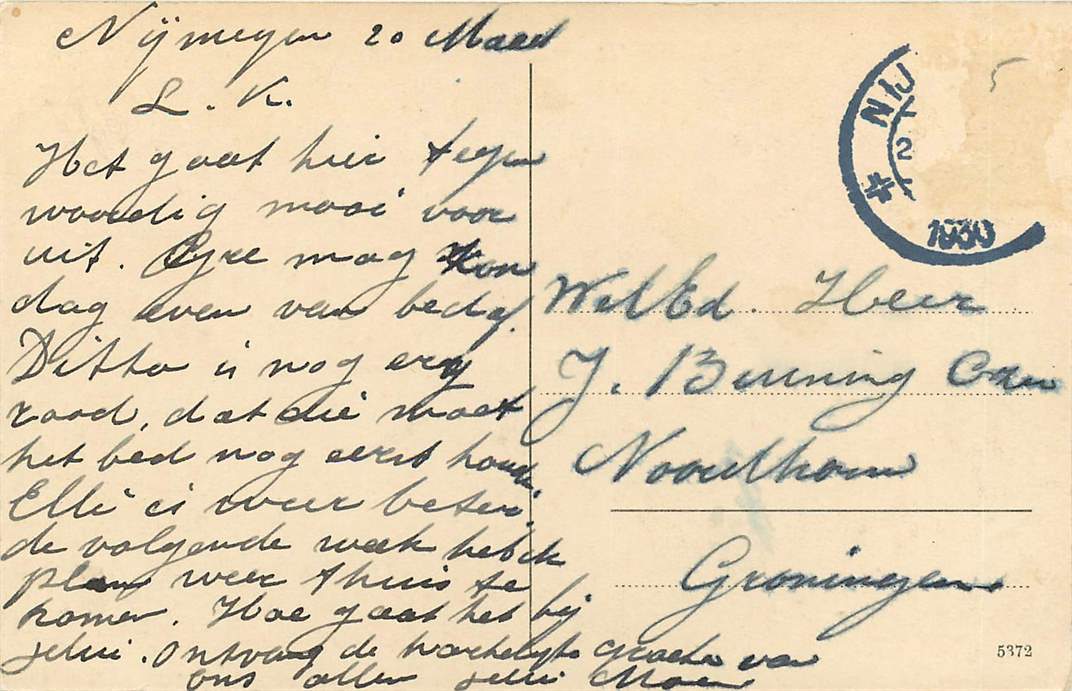 Nijmegen 20 Maart
L. K.
Het gaat hier tegen
woordig mooi voor
uit. mag
dag even van bed af.
Ditto is nog erg
rood, dat die moet
het bed nog eerst houden.
Elli is weer beter.
de volgende week heb ik
plan weer thuis te
komen. Hoe gaat het bij
jelui. Ontvang de hartelijkste Groeten van
ons allen jelui Moe
NIJ
2
1930
5
WelEd. Heer
J. Bunning
Noordhorn
Groningen
5372